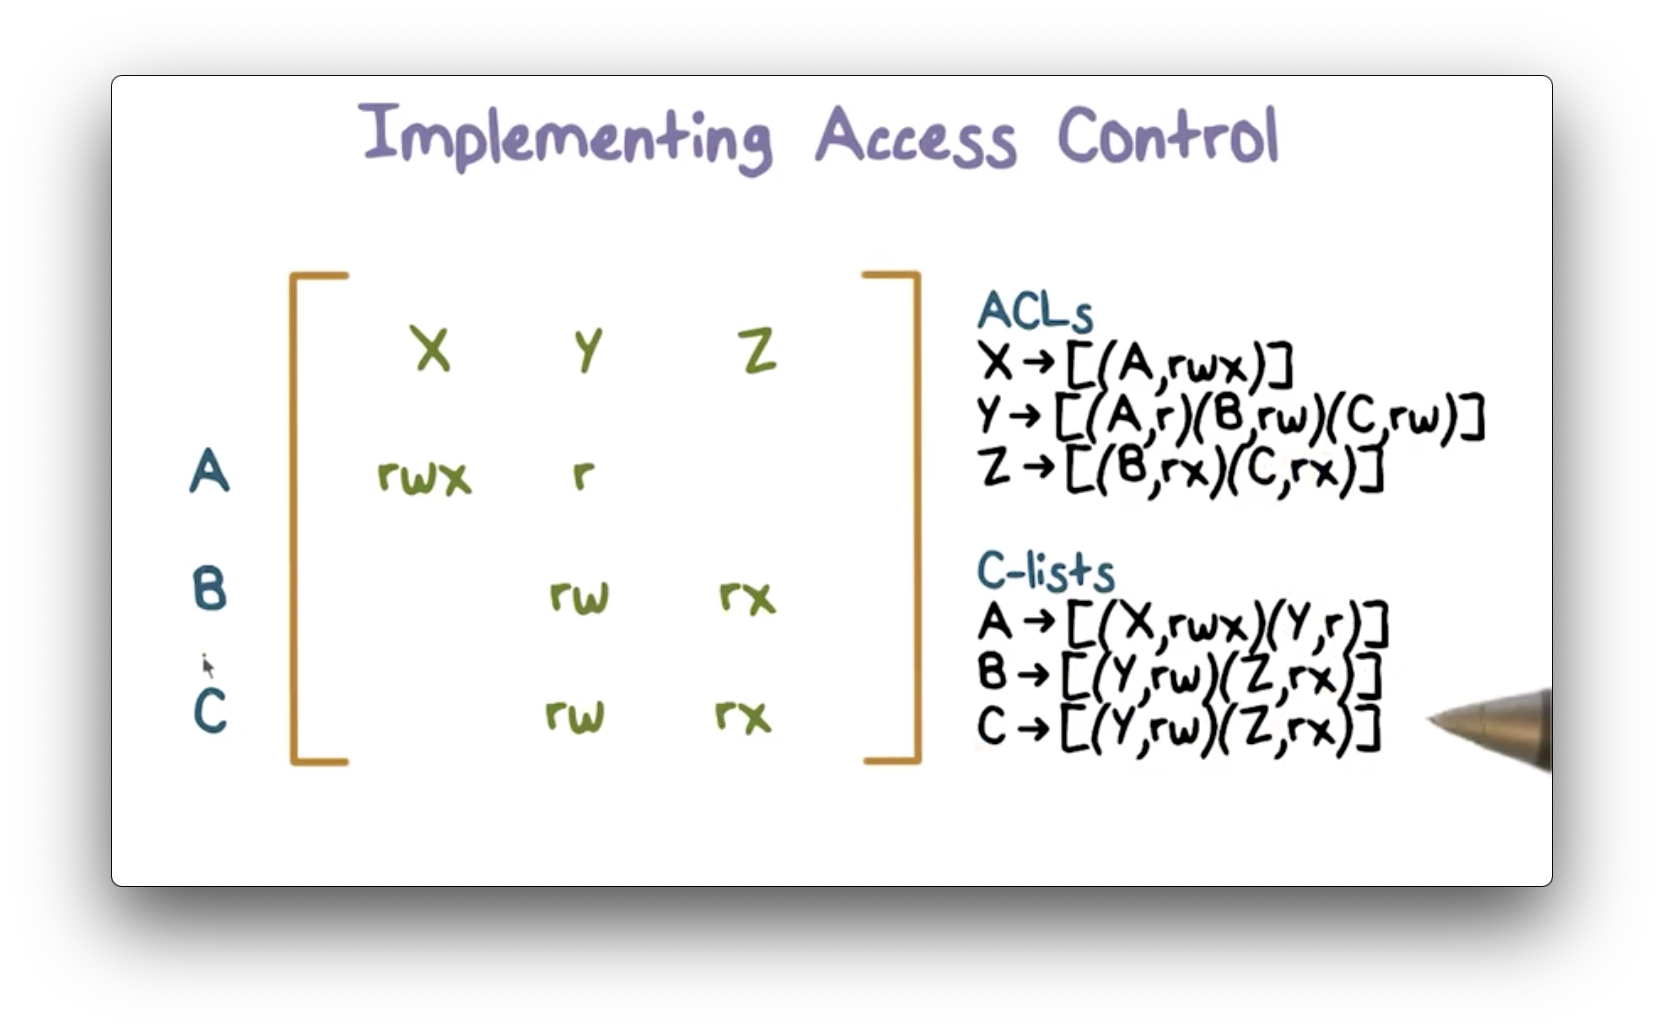 Implementing Access Control
X Y Z
A rwx r
B rw rx
C rw rx
ACLs
X → [(A,rwx)]
Y → [(A,r)(B,rw)(C,rw)]
Z → [(B,rx)(C,rx)]
C-lists
A → [(X,rwx)(Y,r)]
B → [(Y,rw)(Z,rx)]
C → [(Y,rw)(Z,rx)]